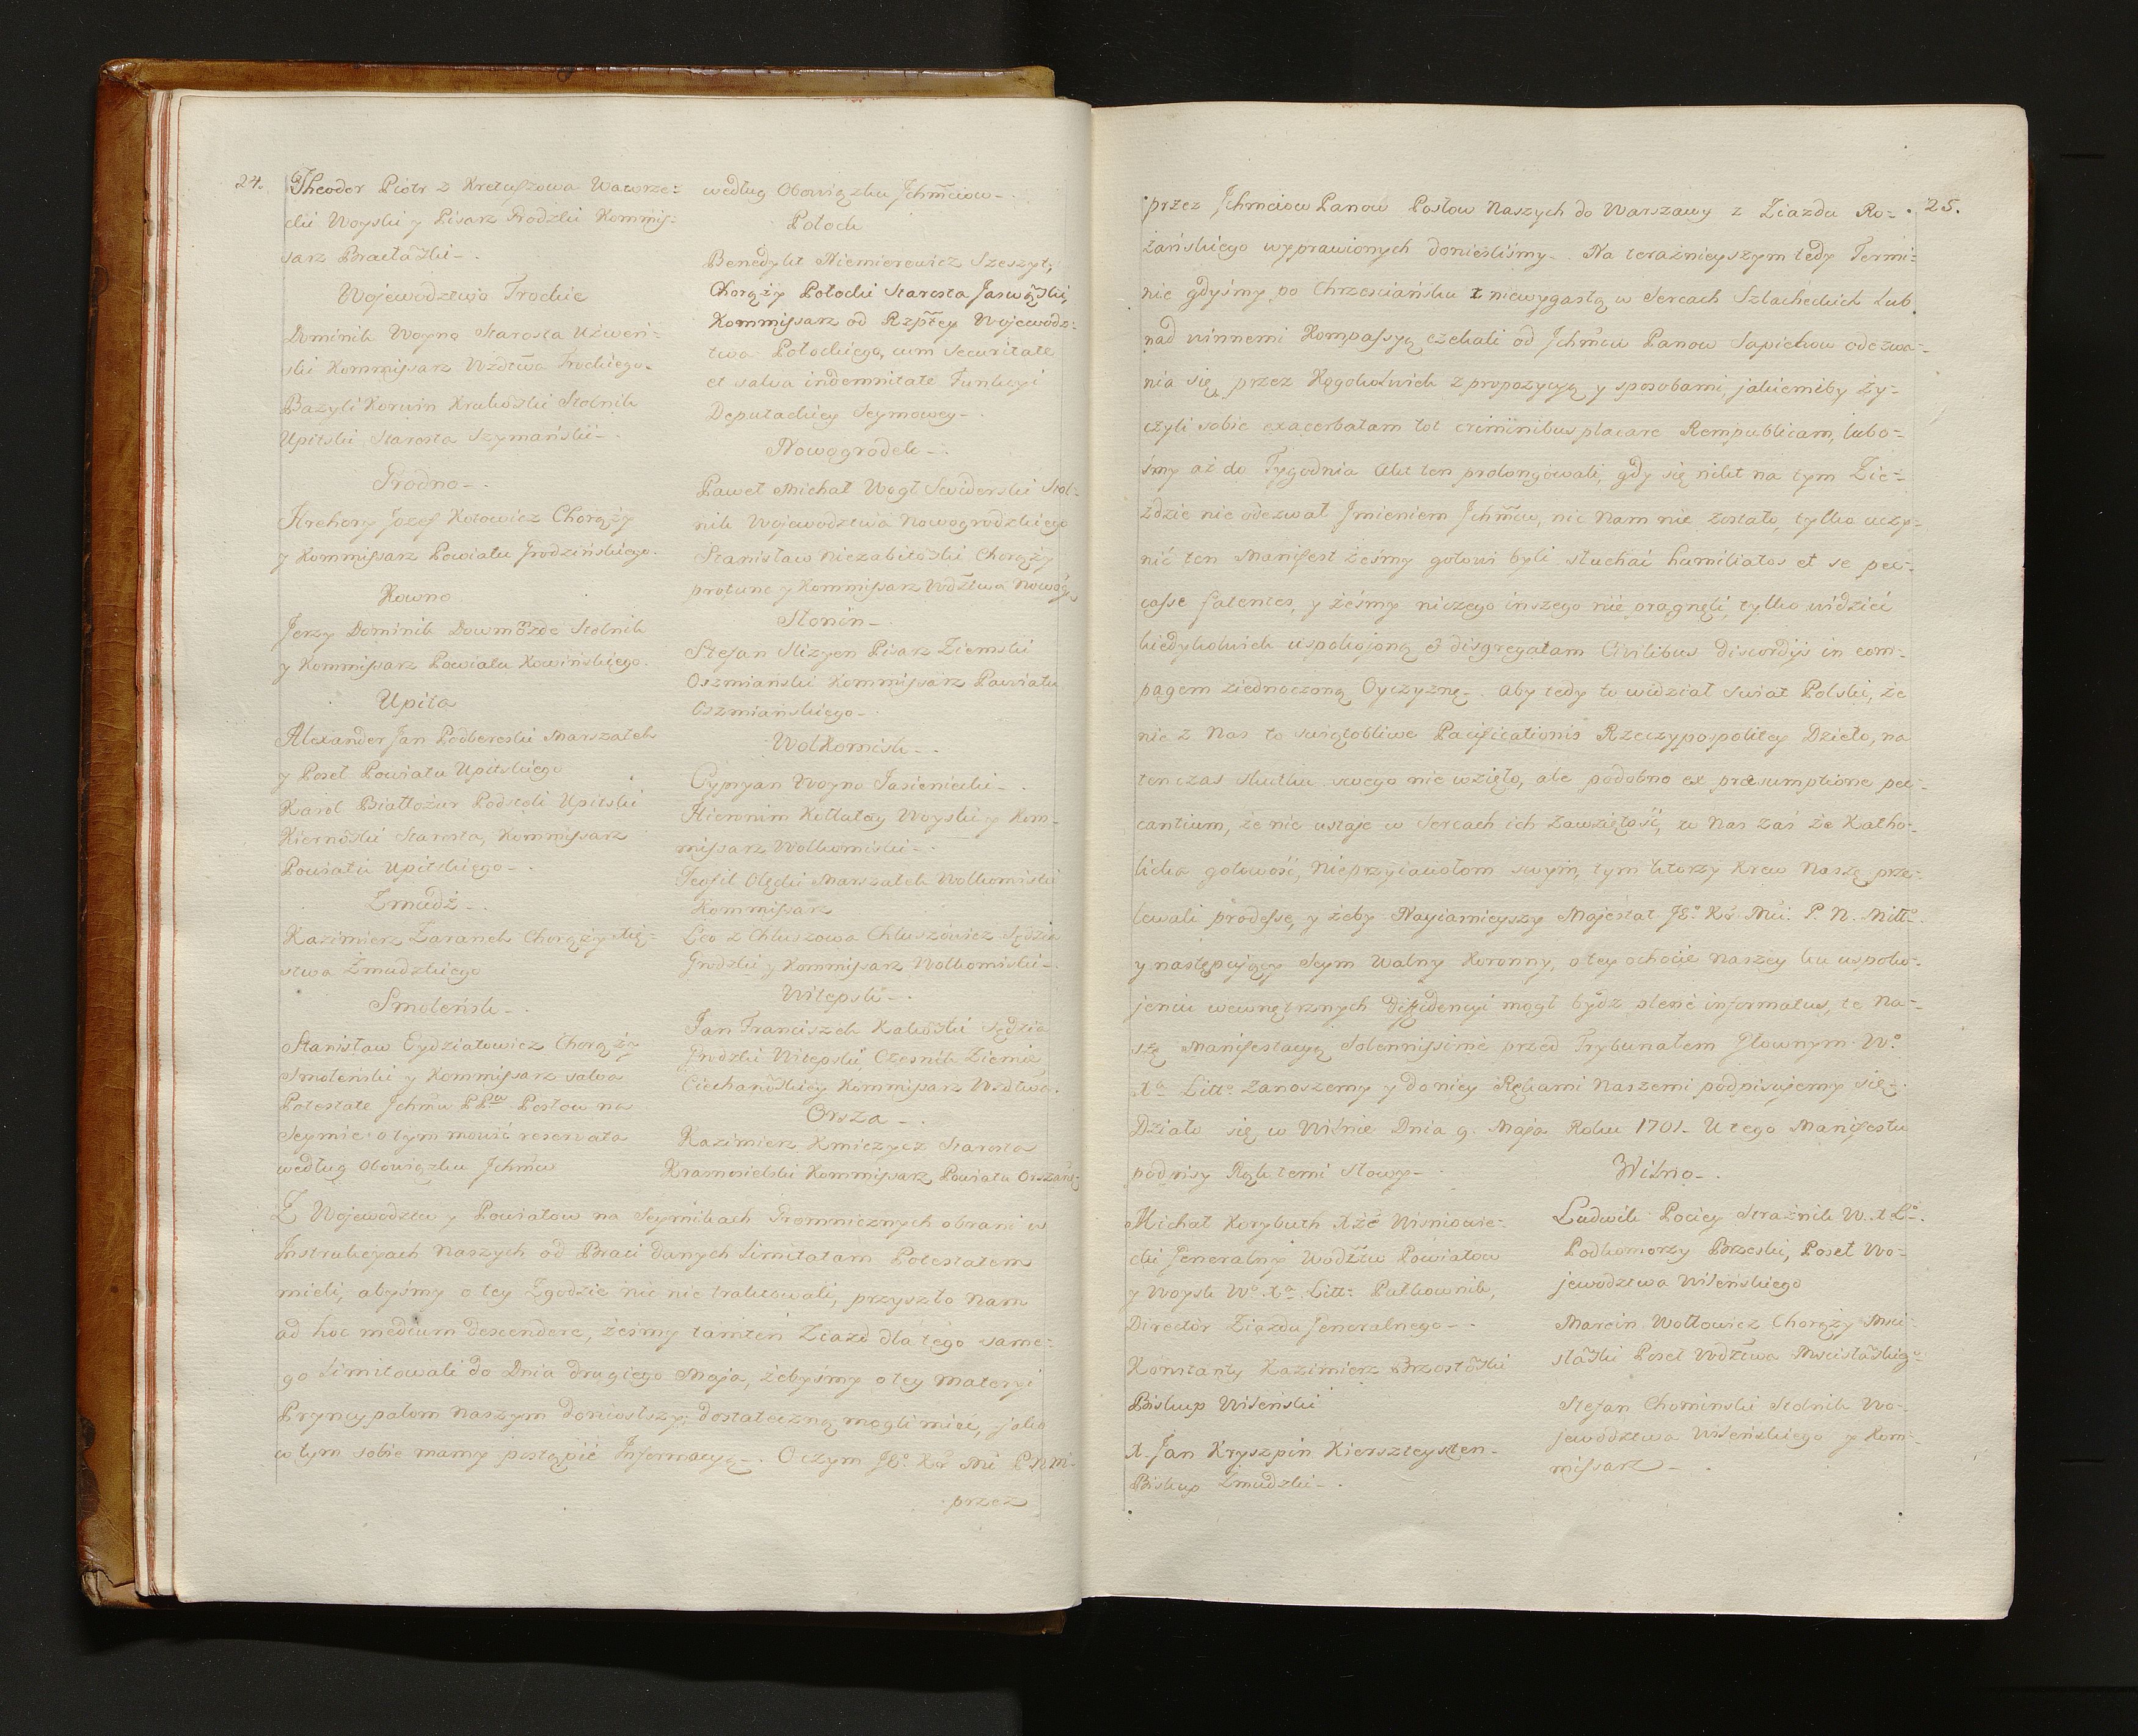 24.
Theodor Piotr z Kretuszowa Wawrze-
cki Woyski y Pisarz Grodzki Kommis-
sarz Bracłaŵski.
Wojewodztwo Trockie
Dominik Woyna Starosta Użweń-
ski Kommissarz Wżdtwa Trockiego.
Bazyli Korwin Krukoŵski Stolnik
Upitski Starosta Szymański.
Grodno.
Hrehory Jozef Kotowicz Chorąży
y Kommissarz Powiatu Grodzińskiego.
Kowno
Jerzy Dominik Dowmont Stolnik
y Kommissarz Powiatu Kowińskiego.
Upita
Alexander Jan Podbereski Marszałek
y Poseł Powiatu Upitskiego
Karol Białłozur Podsędi Upitski
Kiernoŵski Starosta, Kommissarz
Powiatu Upitskiego.
Zmudź.
Kazimierz Zaranek Chorąży Xię-
stwa Żmudzkiego
Smoleńsk.
Stanisław Eydziatowicz Chorąży
Smoleński y Kommissarz salva
Potestate Jchmw PPw Posłow na
Seymie o tym mowić reservata
według Obowiązku Jchmw
według Obowiązku Jchmciow.
Połock
Benedykt Niemierewicz Szeszyt,
Chorąży Połocki Starosta Jaswoyski,
Kommissarz od Rzptey Wojewodz-
twa Połockiego, cum securitate
et salva indemnitate Funkcyi
Deputackiey Seymowey.
Nowogrodek.
Paweł Michał Wogł Swiderski Stol-
nik Wojewodztwa Nowogrodzkiego
Stanisław Niezabitoŵski Chorąży
protunc y Kommissarz Wdztwa Nowog.
Słonin.
Stefan Slizyen Pisarz Ziemski
Oszmiański Kommissarz Powiatu
Oszmiańskiego.
Wolkomisk.
Cypryan Woyno Jasieniecki.
Hieronim Kołłątay Woyski y Kom-
missarz Wolkomiski.
Teofil Olędzki Marszałek Wolkomiski
Kommissarz
Leo z Chluszowa Chluszowicz Sędzia
Grodzki y Kommissarz Wolkomiski.
Witepsk.
Jan Franciszek Kakoŵski Sędzia
Grodzki Witepski, Czesnik Ziemie
Ciechanoŵskiey Kommissarz Wzdtwa.
Orsza.
Kazimierz Kmiczycz Starosta
Krasnosielski Kommissarz Powiatu Orszańs.
Z Wojewodztw y Powiatow na Seymikach Gromnicznych obrani w
Instrukcyach naszych od Braci danych limitatam Potestatem
mieli, abyśmy o tey Zgodzie nic nie traktowali, przyszło nam
ad hoc medium descendere, żeśmy tamten Ziazd dla tego same-
go limitowali do Dnia drugiego Maja, żebyśmy o tey materyi
Pryncypałom naszym doniosłszy, dostateczną mogli mieć, jako
w tym sobie mamy postąpić Informacyą. O czym JEo Kr Mci PNM.
przez
25.
przez Jchmciow Panow Posłow naszych do Warszawy z Ziazdu Ro-
żańskiego wyprawionych donieśliśmy. Na teraźnieyszym tedy Termi-
nie gdyśmy po Chrześciańsku z niewygasłą w Sercach Szlacheckich lub
nad winnemi Kompassyą czekali od Jchmciw Panow Sapiehow odezwa-
nia się przez Kogokolwiek z propozycyą y sposobami jakiemiby ży-
czyli sobie exacerbatam tot criminibus placare Rempublicam, lubo-
śmy aż do Tygodnia Akt ten prolongowali, gdy się nikt na tym Zie-
zdzie nie odezwał Jmieniem Jchmw, nic nam nie zostało, tylko uczy-
nić ten Manifest żeśmy gotowi byli słuchać humiliatos et se pec-
casse fatentes, y żeśmy niczego inszego nie pragnęli, tylko widzieć
kiedykolwiek uspokojoną & disgregatam Civilibus discordijs in com-
pagem ziednoczoną Oyczyznę. Aby tedy to widział świat Polski, że
nie z nas to świątobliwe Pacificationis Rzeczypospolitey Dzieło, na
ten czas skutku swego nie wzięło, ale podobno ex præsumptione pec-
cantium, że nie ustaje w Sercach ich zawziętość, w nas zaś że Katho-
licka gotowość, Nieprzyiaciołom swym, tym ktorzy Krew naszę prze-
lewali prodesse, y żeby Nayiasnieyszy Majestat JEo Kr Mci. P. N. Miłło
y następujący Seym Walny Koronny, o tey ochocie naszey ku uspoko-
jeniu wewnętrznych diffidencyi mogł bydz plene informatus, te na-
szę Manifestacyą Solennissime przed Trybunałem Głownym Wo
Xa Litto zanoszemy y do niey Rękami naszemi podpisujemy się.
Działo się w Wilnie Dnia 9. Maja Roku 1701. U tego Manifestu
podpisy Rąk temi Słowy.
Michał Korybuth Xże Wisniowie-
cki Generalny Wodztw Powiatow
y Woysk Wo Xa Litt: Pułkownik,
Director Ziazdu Generalnego.
Konstanty Kazimierz Brzostoŵski
Biskup Wileński
X. Jan Kryszpin Kierszteysten.
Biskup Żmudzki.
Wilno.
Ludwik Pociey Strażnik W. X Lo.
Podkomorzy Brzeski, Poseł Wo-
jewodztwa Wileńskiego
Marcin Wołłowicz Chorąży Mści-
słaŵski Poseł Wdztwa Mscisłaŵskieg:
Stefan Chominski Stolnik Wo-
jewodztwa Wileńskiego y Kom-
missarz.